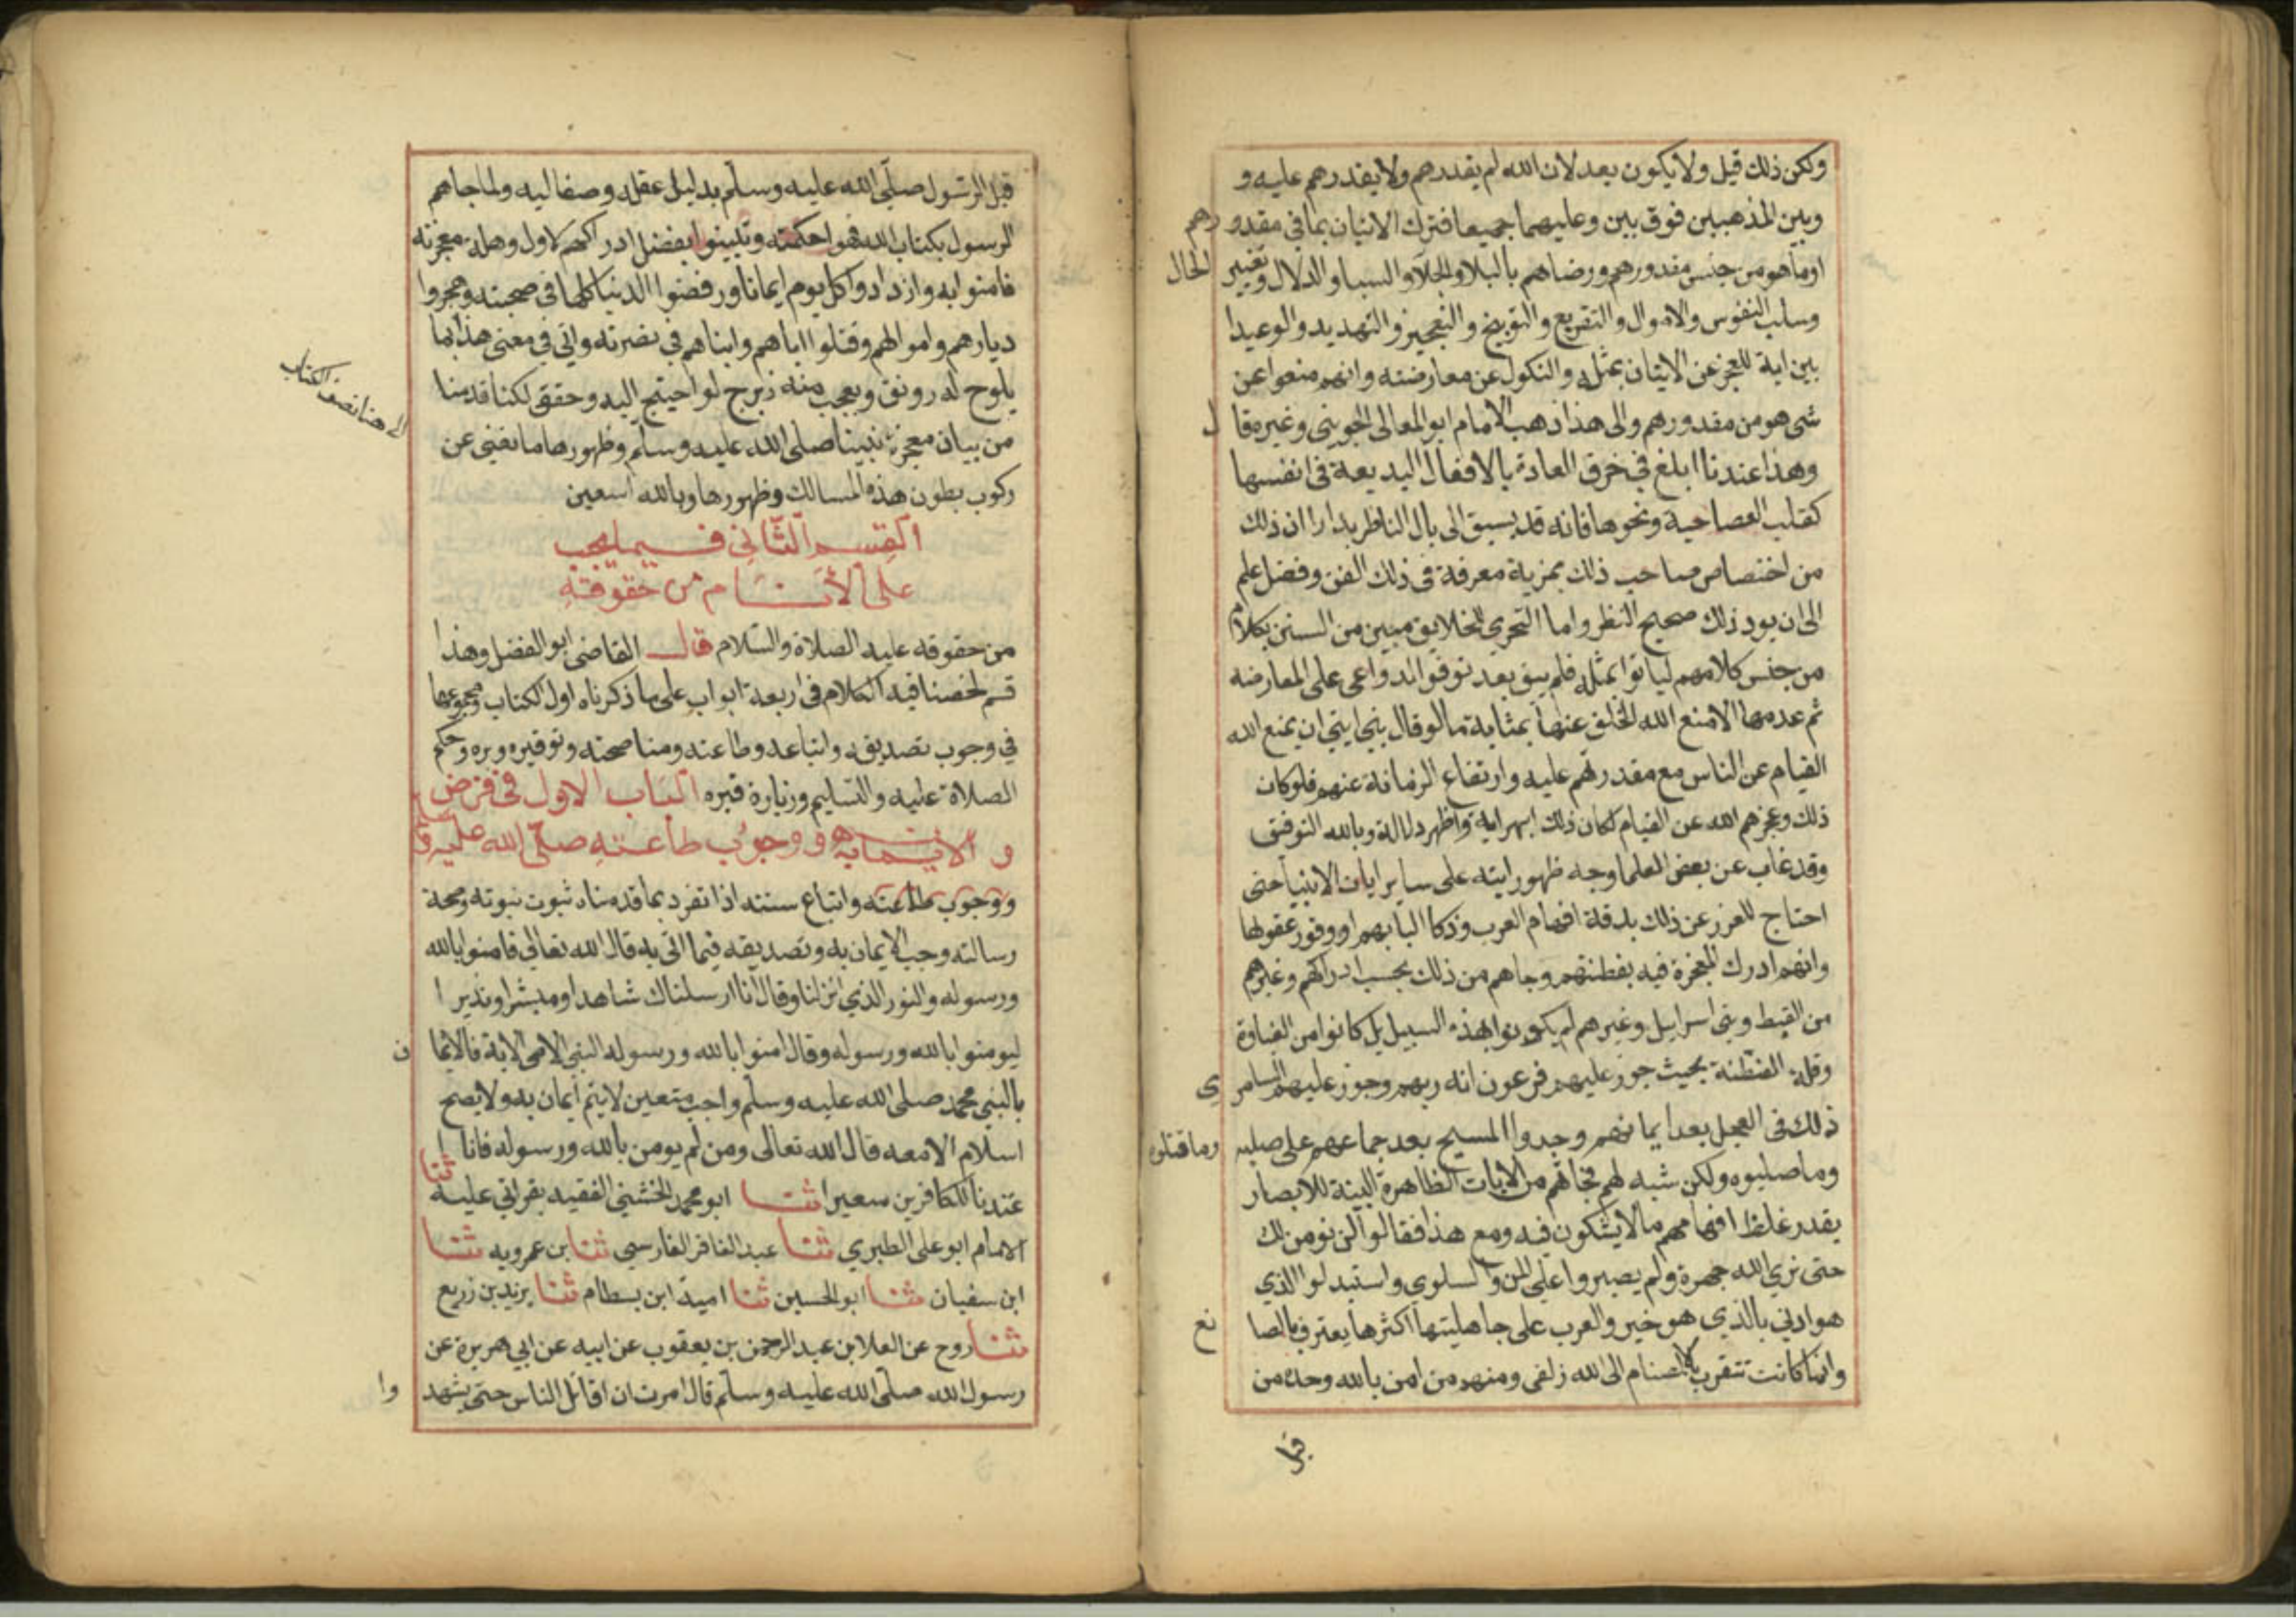 ولكن ذلك قيل ولا يكون بعد لان الله لم يقدرهم ولا يقدرهم عليه و
وبين المذهبين فوق بين وعليهما جميعا فترك الاتيان بما في مقدورهم
او ما هو من جنس مقدورهم ورضاهم بالبلا والجلا والسبا والذلال وتغيير الحال
وسلب النفوس والاموال والتقريع والتوبيخ والتعجيز والتهديد والوعيد ا
بين اية للعجز عن الاتيان بمثله والنكول عن معارضته وانهم منعوا عن
شي هو من مقدورهم والى هذا ذهب الامام ابو المعالى الجويني وغيره قال
وهذا عندنا ابلغ في خرق العادة بالافعال البديعة في انفسها
كقلب العصا حية ونحوها فانه قد يسبق الى بال الناظر بدارا ان ذلك
من اختصاص صاحب ذلك بمزية معرفة في ذلك الفن وفضل علم
الى ان يرد ذلك صحيح النظر واما التحري للخلايق مبين من السنين بكلام
من جنس كلامهم لياتوا بمثله فلم يبق بعد توفر الدواعى على المعارضه
ثم عدمها الا منع الله الخلق عنها بمثابة ما لو قال نبي ايتي ان يمنع الله
القيام عن الناس مع مقدرتهم عليه وارتفاع الزمانة عنهم فلو كان
ذلك وعجزهم الله عن القيام لكان ذلك ابهر اية واظهر دلالة وبالله التوفيق
وقد غاب عن بعض العلما وجه ظهور ايته على ساير ايات الانبيا حتى
احتاج للعزر عن ذلك بدقة افهام العرب وذكا البابهم او وفور عقولها
وانهم ادرك المعجزة فيه بفطنتهم وجاهم من ذلك بحسب ادراكهم وغيرهم
من القبط وبني اسراييل وغيرهم لم يكونوا بهذه السبيل بل كانوا من الغباوة
وقلة الفطنة بحيث جوز عليهم فرعون انه ربهم وجوز عليهم السامري
ذلك في العجل بعد ايمانهم وجدوا المسيح بعد جماعهم على صلبه وما قتلوه
وما صلبوه ولكن شبه لهم فجاتهم من الايات الظاهرة البينة للابصار
بقدر غلظ افهامهم ما لا يشكون فيه ومع هذا فقالوا لن نومن لك
حتى نري الله جهرة ولم يصبروا على المن والسلوى واستبدلوا الذي
هو ادني بالذي هو خير والعرب على جاهليتها اكثرها يعترف بالصانع
وانما كانت تتقرب بالاصنام الى الله زلفى ومنهم من امن بالله وحده من
قبل
قبل الرسول صلى الله عليه وسلم بدليل عقله وصفا ليه ولما جاهم
الرسول بكتاب الله فهموا حكمته وتبينوا بفضل ادراكهم لاول وهلة معجزته
فامنوا به وازدادوا كل يوم ايمانا ورفضوا الدنيا كلها في صحبته وهجروا
ديارهم واموالهم وقتلوا اباهم وابناهم في نصرته واتي في معنى هذا بما
يلوح له رونق ويعجب منه زبرج لو احتيج اليه وحقق لكنا قدمنا
من بيان معجزة نبينا صلى الله عليه وسلم وظهورها ما نغني عن
ركوب بطون هذه المسالك وظهورها وبالله استعين
الى هنا نصف الكتاب
القسم الثاني فيما يجب
على الأنام من حقوقه
من حقوقه عليه الصلاة والسلام قال القاضى ابو الفضل وهذا
قسم لخصنا فيه الكلام في اربعة ابواب على ما ذكرناه اول الكتاب ومجموعها
في وجوب تصديقه واتباعه وطاعته ومناصحته وتوقيره وبره وحكم
الصلاة عليه والتسليم وزيارة قبره الباب الاول في فرض
الايمان به ووجوب طاعته صلى الله عليه
ووجوب طاعته واتباع سنته اذا تفرد بما قدمناه ثبوت نبوته وصحة
رسالته وجب الايمان به وتصديقه فيما اتى به قال الله تعالي فامنوا بالله
ورسوله والنور الذي انزلنا وقال انا ارسلناك شاهدا ومبشرا ونذيرا
ليومنوا بالله ورسوله وقال امنوا بالله ورسوله النبي الامى الاية فالايمان
بالنبي محمد صلى الله عليه وسلم واجب متعين لا يتم ايمان به ولا يصح
اسلام الا معه قال الله تعالى ومن لم يومن بالله ورسوله فانا
عتدنا للكافرين سعيرا ثنا ابو محمد الخشني الفقيه بقراتي عليه ثنا
الامام ابو على الطبري ثنا عبد الغافر الفارسي ثنا بن عمرويه ثنا
ابن سفيان ثنا ابو الحسين ثنا امية ابن بسطام ثنا يزيد بن زريع
ثنا روح عن العلا بن عبد الرحمن بن يعقوب عن ابيه عن ابي هريرة عن
رسول الله صلى الله عليه وسلم قال امرت ان اقاتل الناس حتى يشهدوا